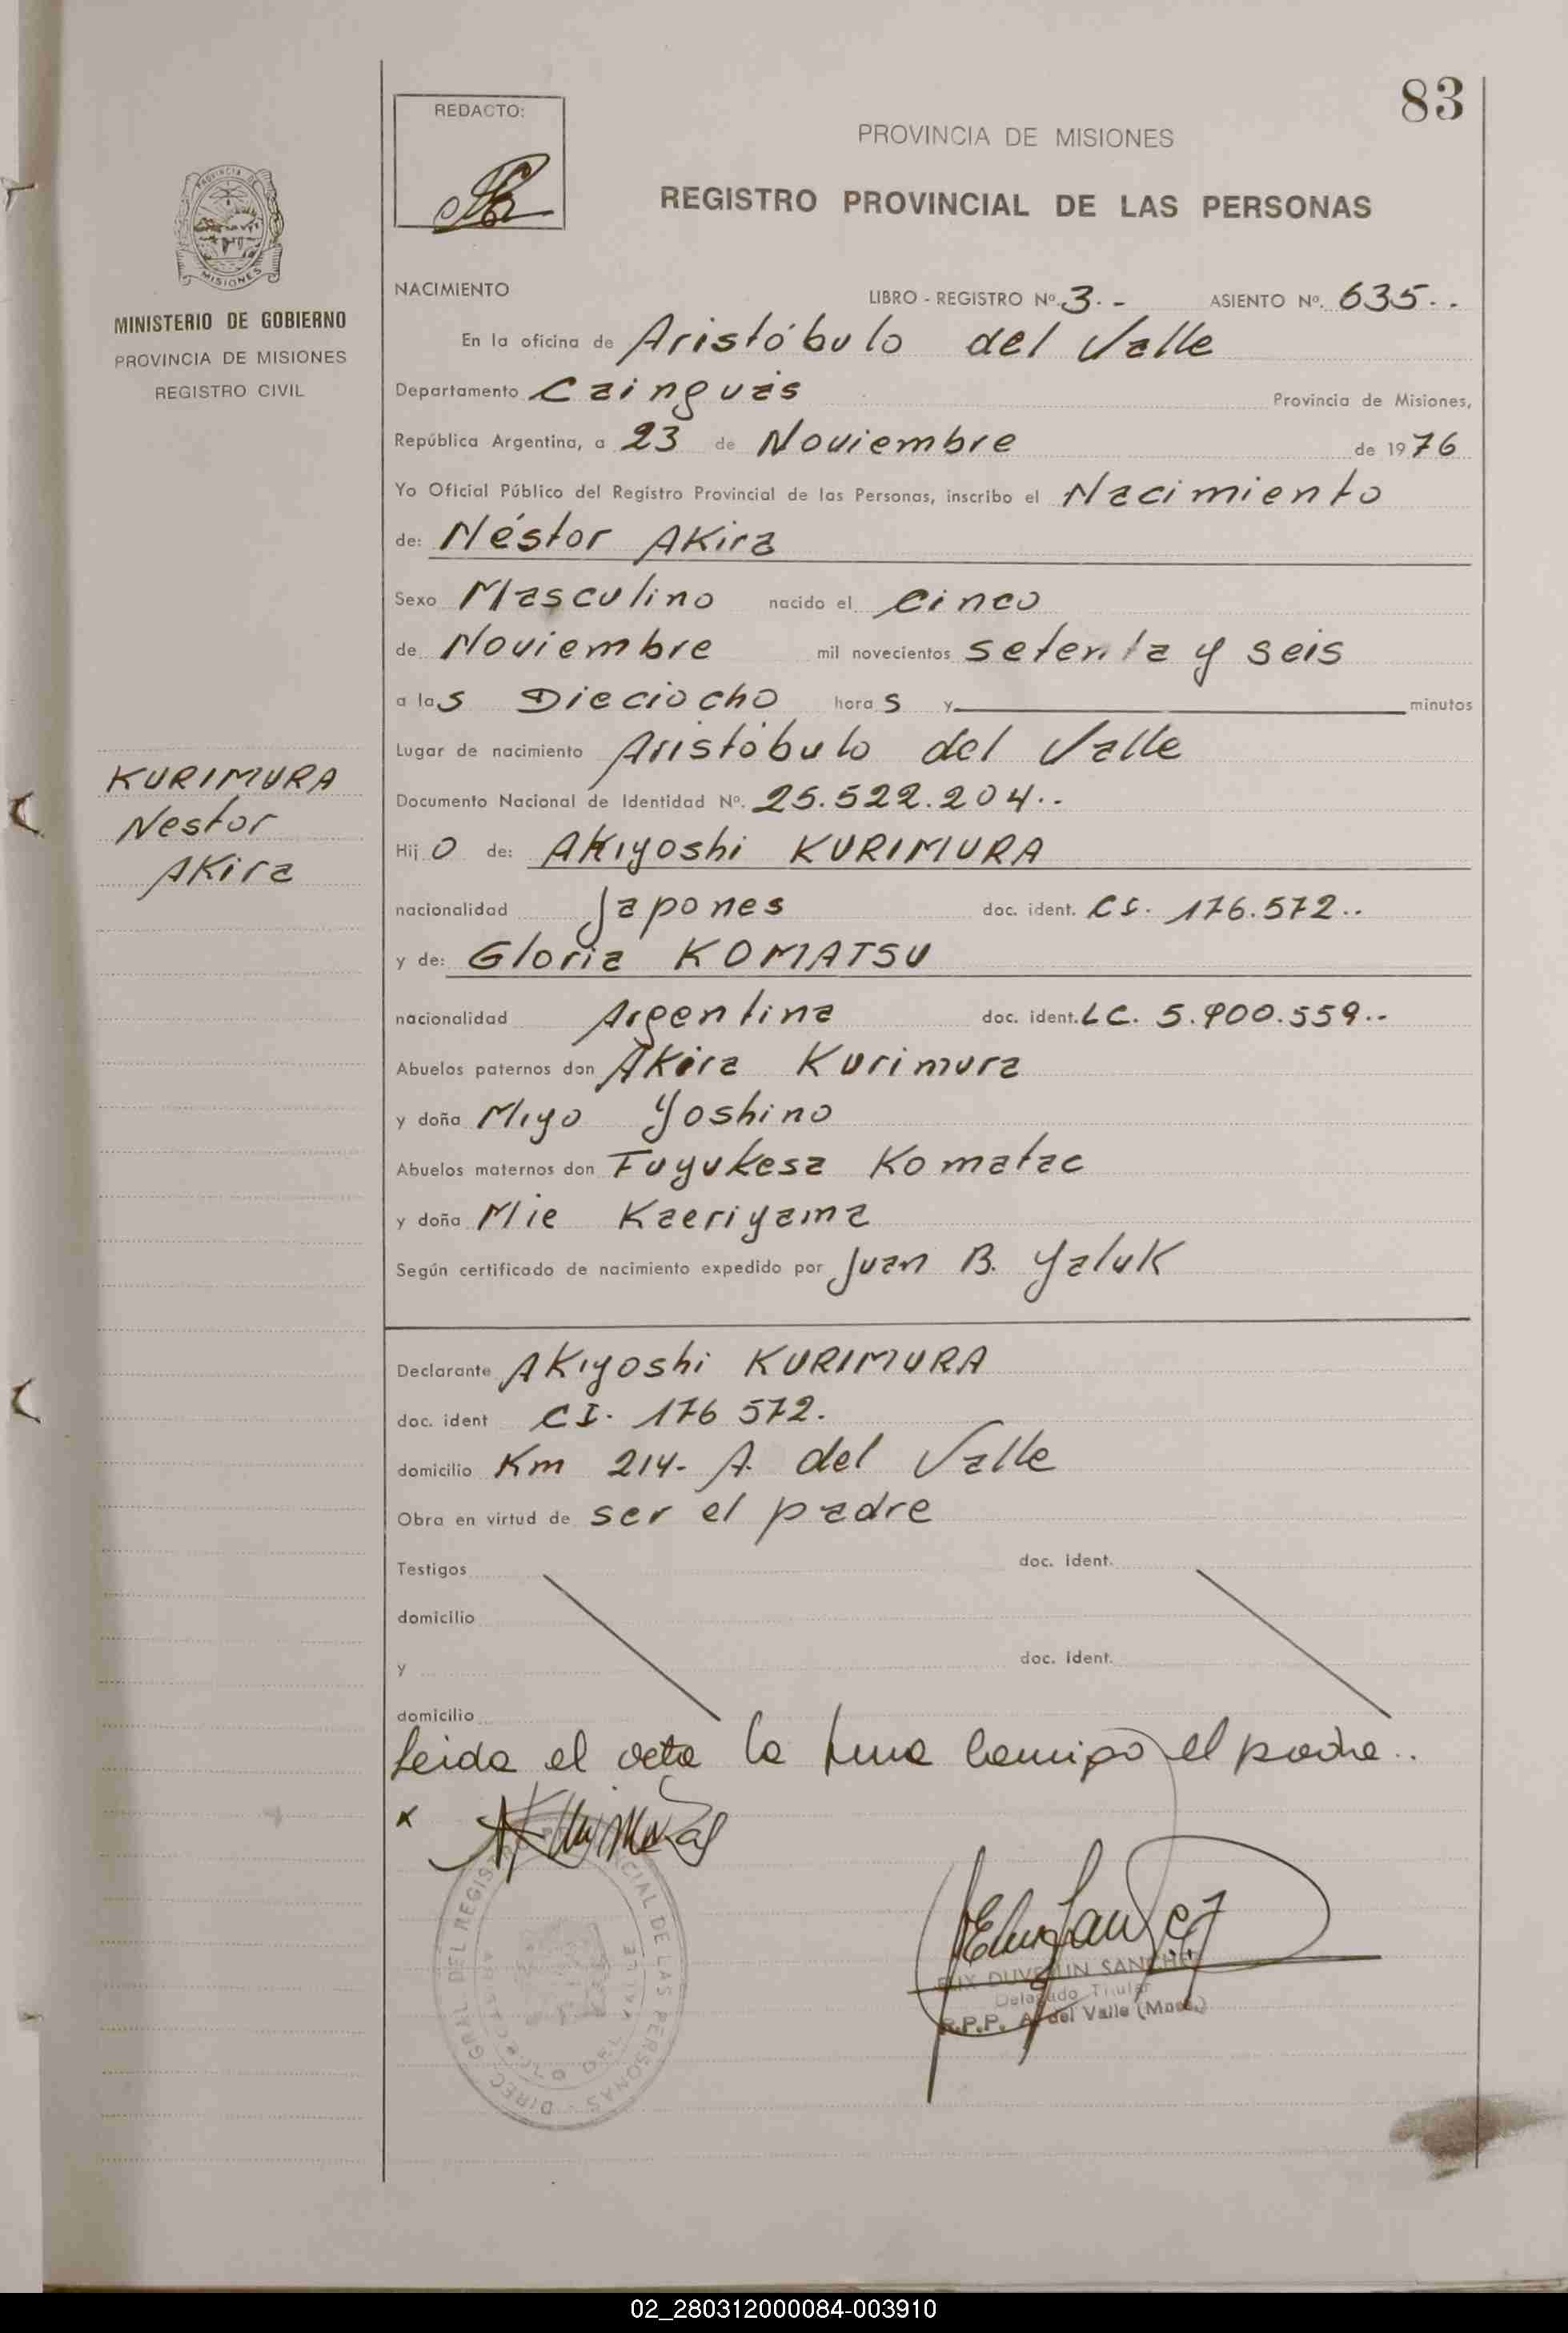 83
REDACTO:
PROVINCIA DE MISIONES
REGISTRO PROVINCIAL DE LAS PERSONAS
MINISTERIO DE GOBIERNO
PROVINCIA DE MISIONES
REGISTRO CIVIL
NACIMIENTO LIBRO - REGISTRO Nº. 3.- ASIENTO Nº. 635..
En la oficina de Aristóbulo del Valle
Departamento Cainguás Provincia de Misiones,
República Argentina, a 23 de Noviembre de 1976
Yo Oficial Público del Registro Provincial de las Personas, inscribo el Nacimiento
de: Néstor Akira
Sexo Masculino nacido el cinco
de Noviembre mil novecientos setenta y seis
a las Dieciocho horas y minutos
Lugar de nacimiento Aristóbulo del Valle
KURIMURA
Nestor
Akira
Documento Nacional de Identidad Nº. 25.522.204..
Hijo de: Akiyoshi KURIMURA
nacionalidad Japones doc. ident. CI. 176.572..
y de: Gloria KOMATSU
nacionalidad Argentina doc. ident. LC. 5.900.559..
Abuelos paternos don Akira Kurimura
y doña Miyo Yoshino
Abuelos maternos don Fuyukesa Komatac
y doña Mie Kaeriyama
Según certificado de nacimiento expedido por Juan B. Yaluk
Declarante Akiyoshi KURIMURA
doc. ident CI. 176 572.
domicilio Km 214- A. del Valle
Obra en virtud de ser el padre
Testigos doc. ident.
domicilio
y doc. ident.
domicilio
Leida el acta la firma conmigo el padre..
DIREC. GRAL. DEL REGISTRO PROVINCIAL DE LAS PERSONAS
DUVERLIN SANCHEZ
Delegado Titular
R.P.P. A. del Valle (Mnes.)
02_280312000084-003910